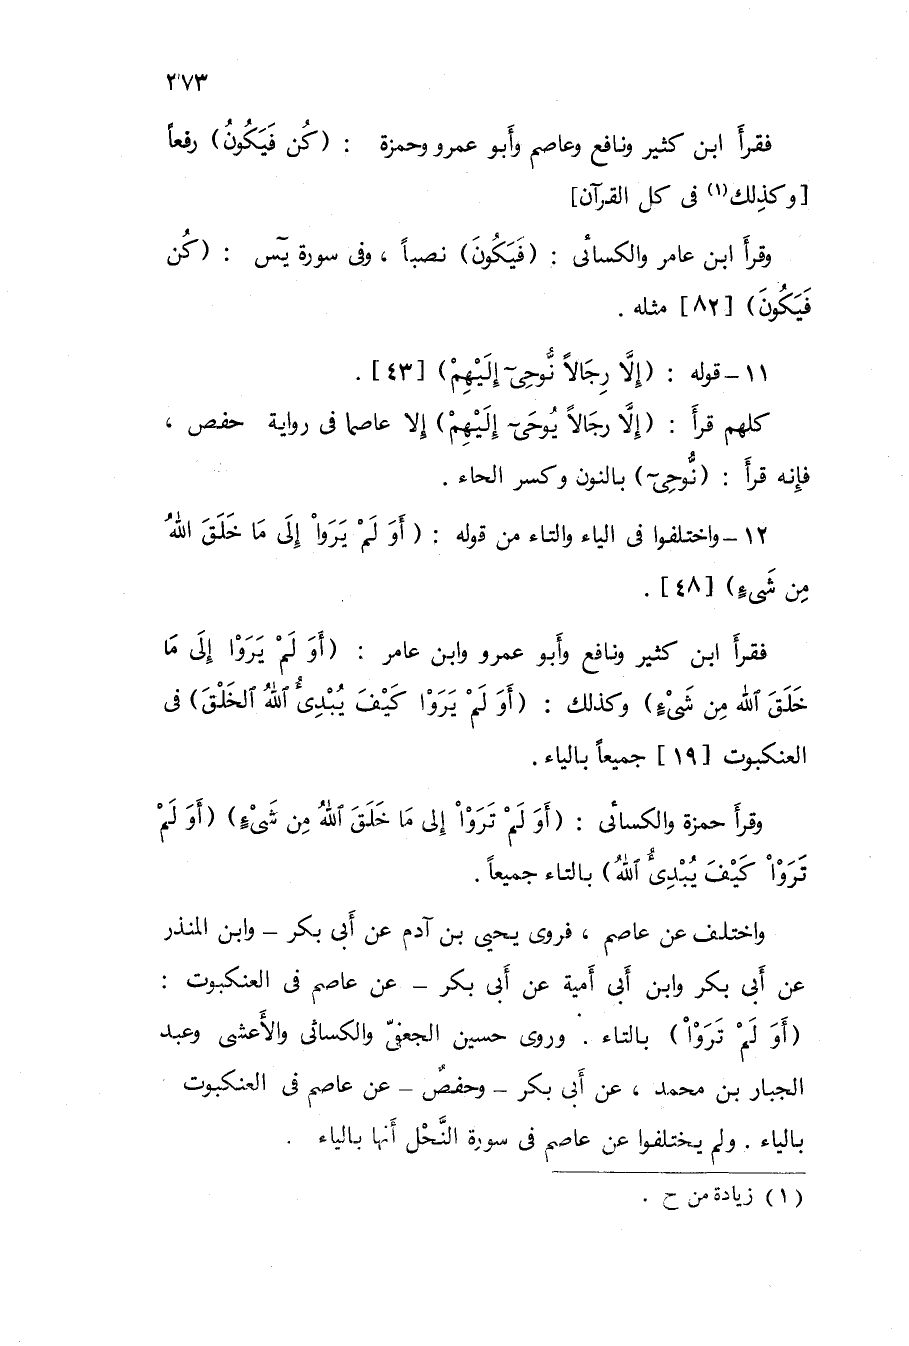 ٢٧٣
فقرأَ ابن كثير ونافع وعاصم وأَبو عمرو وحمزة : (كُن فَيَكُونُ) رفعاً
[وكذلك(١) فى كل القرآن]
وقرأَ ابن عامر والكسائى : (فَيَكُونَ) نصباً ، وفى سورة يٓس : (كُن
فَيَكُونَ) [٨٢] مثله .
١١ – قوله : (إِلَّا رِجَالاً نُّوحِىٓ إِلَيْهِمْ) [٤٣] .
كلهم قرأَ : (إِلَّا رِجَالاً يُوحَىٓ إِلَيْهِمْ) إلا عاصما فى رواية حفص ،
فإنه قرأَ : (نُّوحِىٓ) بالنون وكسر الحاء .
١٢ – واختلفوا فى الياء والتاء من قوله : (أَوَ لَمْ يَرَواْ إِلَى مَا خَلَقَ اللهُ
مِن شَىءٍ) [٤٨] .
فقرأَ ابن كثير ونافع وأَبو عمرو وابن عامر : (أَوَ لَمْ يَرَوْا إِلَى مَا
خَلَقَ ٱلله مِن شَىْءٍ) وكذلك : (أَوَ لَمْ يَرَوْا كَيْفَ يُبْدِىُٔ ٱللهُ ٱلخَلْقَ) فى
العنكبوت [١٩] جميعاً بالياء .
وقرأَ حمزة والكسائى : (أَوَ لَمْ تَرَوْاْ إِلى مَا خَلَقَ ٱللهُ مِن شَىْءٍ) (أَوَ لَمْ
تَرَوْاْ كَيْفَ يُبْدِىُٔ ٱللهُ) بالتاء جميعاً .
واختلف عن عاصم ، فروى يحيى بن آدم عن أَبى بكر – وابن المنذر
عن أَبى بكر وابن أَبى أمية عن أَبى بكر – عن عاصم فى العنكبوت :
(أَوَ لَمْ تَرَوْاْ) بالتاء . وروى حسين الجعفىّ والكسائى والأَعشى وعبد
الجبار بن محمد ، عن أَبى بكر – وحفصٌ – عن عاصم فى العنكبوت
بالياء . ولم يختلفوا عن عاصم فى سورة النَّحْل أَنها بالياء .
(١) زيادة من ح .